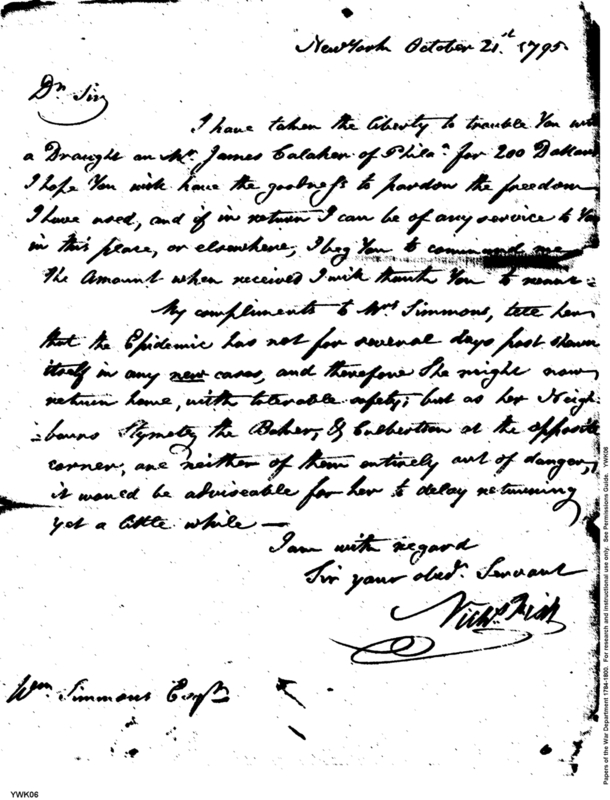 New York October 21.st 1795.
Dr. Sir
I have taken the liberty to trouble You with
a Draught on Mr. James Calaken of Phila.a for 200 Dollars
I hope You will have the goodness to pardon the freedom
I have used, and if in return I can be of any service to You
in this place, or elsewhere, I beg You to command me
The Amount when received I will thank You to remit -
My compliments to Mrs Simmons, tell her
that the Epidemic has not for several days past shewn
itself in any new cases, and therefore She might now
return home, with tolerable safety; but as her Neigh
-bours Stymetz the Baker, & Culbertson at the opposite
corner, are neither of them entirely out of danger,
it would be adviseable for her to delay returning
yet a little while —
I am with regard
Sir your obedt. Servant
Nichs Fish
Wm Simmons Esqr
YWK06
Papers of the War Department 1784-1800. For research and instructional use only. See Permissions Guide. YWK06